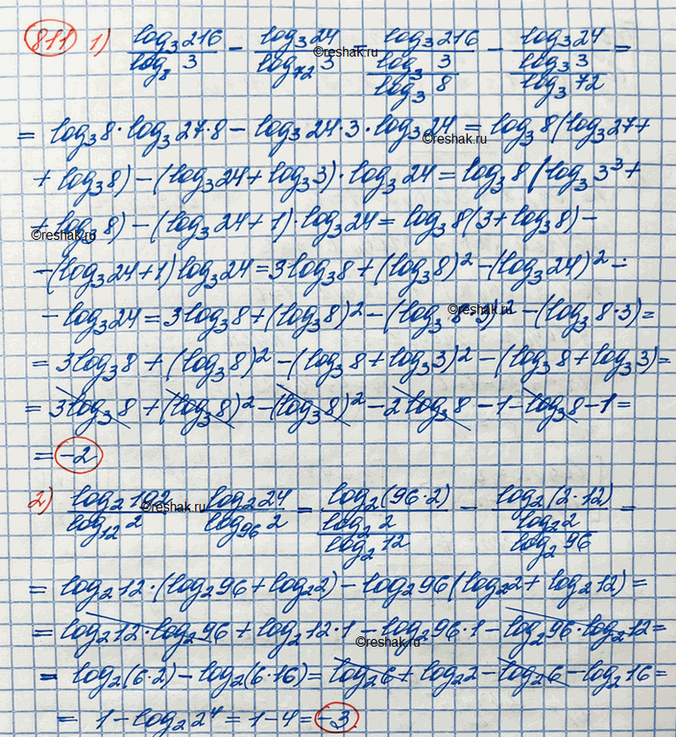 811 1) log₃216/log₈3 − log₃24/log₇₂3 = log₃216/(log₃3/log₃8) − log₃24/(log₃3/log₃72) =
= log₃8·log₃27·8 − log₃24·3·log₃24 = log₃8(log₃27+
+ log₃8) − (log₃24 + log₃3)·log₃24 = log₃8(log₃3³ +
+ log₃8) − (log₃24 + 1)·log₃24 = log₃8(3 + log₃8) −
− (log₃24 + 1)log₃24 = 3log₃8 + (log₃8)² − (log₃24)² −
− log₃24 = 3log₃8 + (log₃8)² − (log₃8·3)² − (log₃8·3) =
= 3log₃8 + (log₃8)² − (log₃8 + log₃3)² − (log₃8 + log₃3) =
= 3log₃8 + (log₃8)² − (log₃8)² − 2log₃8 − 1 − log₃8 − 1 =
= −2
2) log₂192/log₁₂2 − log₂24/log₉₆2 = log₂(96·2)/(log₂2/log₂12) − log₂(2·12)/(log₂2/log₂96) =
= log₂12·(log₂96 + log₂2) − log₂96(log₂2 + log₂12) =
= log₂12·log₂96 + log₂12·1 − log₂96·1 − log₂96·log₂12 =
= log₂(6·2) − log₂(6·16) = log₂6 + log₂2 − log₂6 − log₂16 =
= 1 − log₂2⁴ = 1 − 4 = −3
©reshak.ru
©reshak.ru
©reshak.ru
©reshak.ru
©reshak.ru
©reshak.ru